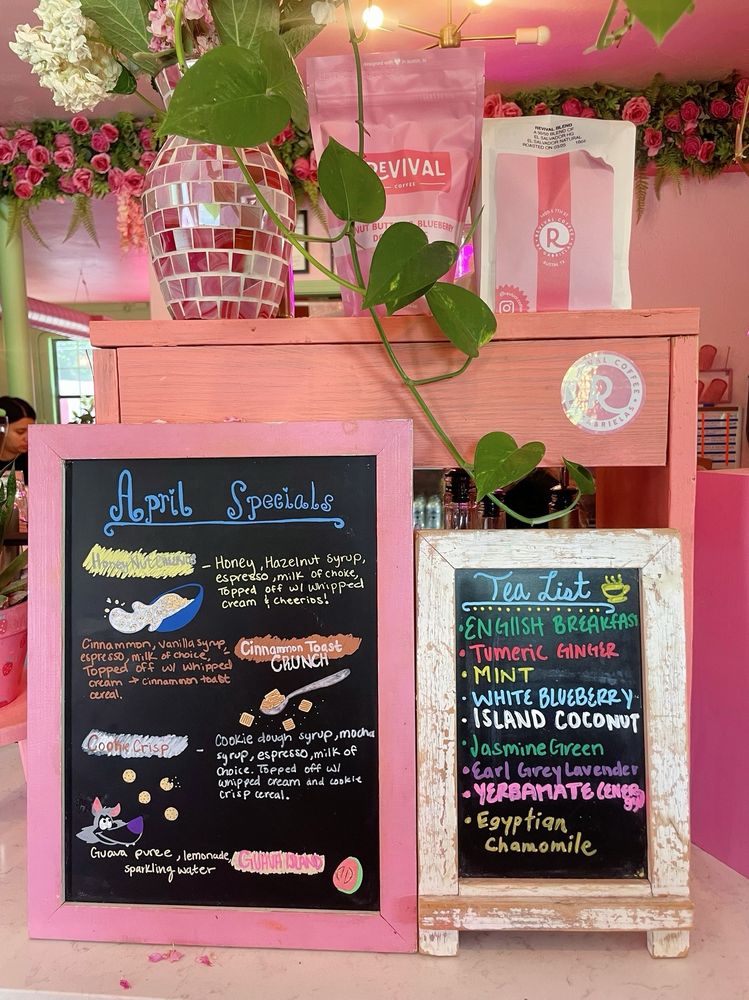 designed with ♥ in Austin, TX
REVIVAL
COFFEE
BLUEBERRY
REVIVAL BLEND
A 50/50 BLEND OF
EL SALVADOR HG
EL SALVADOR NATURAL
ROASTED ON 03/25 10oz
R
AUSTIN, TX
COFFEE
R
GABRIELAS
April Specials
Honey Nut Cheerios - Honey, Hazelnut syrup,
espresso, milk of choice,
Topped off w/ whipped
cream & cheerios!
Cinnammon, vanilla syrup,
espresso, milk of choice,
Topped off w/ whipped
cream → cinnamon toast
cereal.
- Cinnammon Toast
CRUNCH
Cookie Crisp - Cookie dough syrup, mocha
syrup, espresso, milk of
choice. Topped off w/
whipped cream and cookie
crisp cereal.
Guava puree, lemonade,
sparkling water
GUAVA ISLAND
Tea List
• ENGlISH BREAKFAST
• Tumeric GINGER
• MINT
• WHITE BLUEBERRY
• ISLAND COCONUT
• Jasmine Green
• Earl Grey Lavender
• YERBAMATE (ENER
gy)
• Egyptian
Chamomile